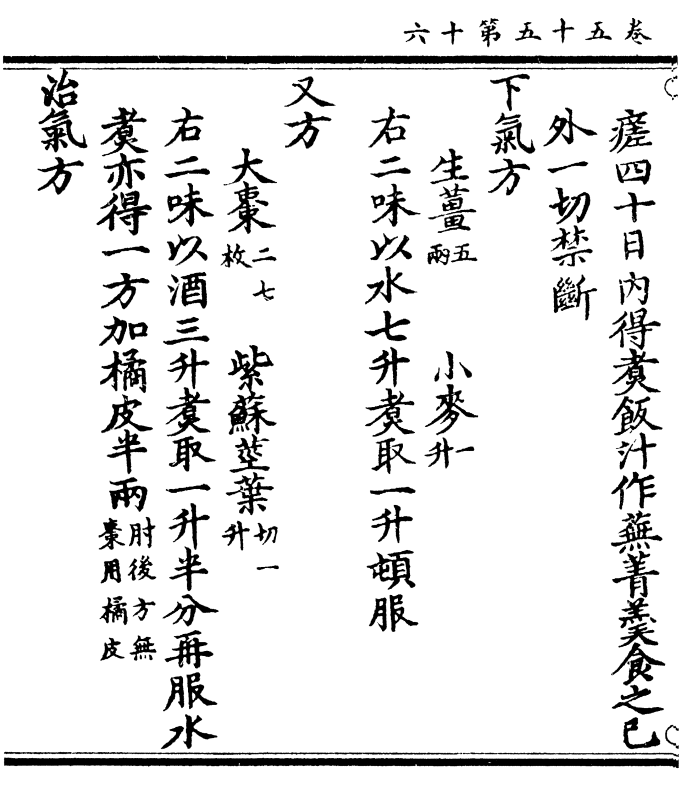 卷五十五第十六
瘥四十日內得煮飯汁作蕪菁羹食之已
外一切禁斷
下氣方
生薑五兩 小麥一升
右二味以水七升煮取一升頓服
又方
大棗二七枚 紫蘇莖葉切一升
右二味以酒三升煮取一升半分再服水
煮亦得一方加橘皮半兩肘後方無棗用橘皮
治氣方